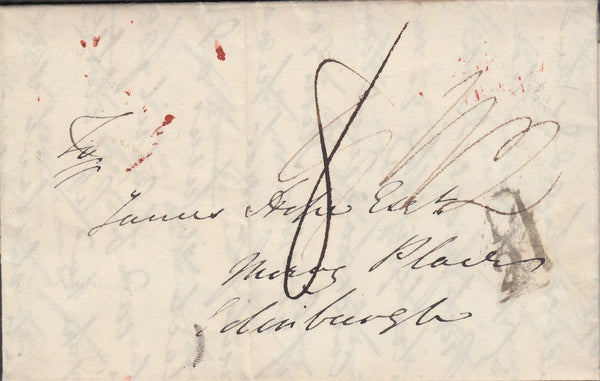 To
8
James Hope Esqr
Moray Place
Edinburgh